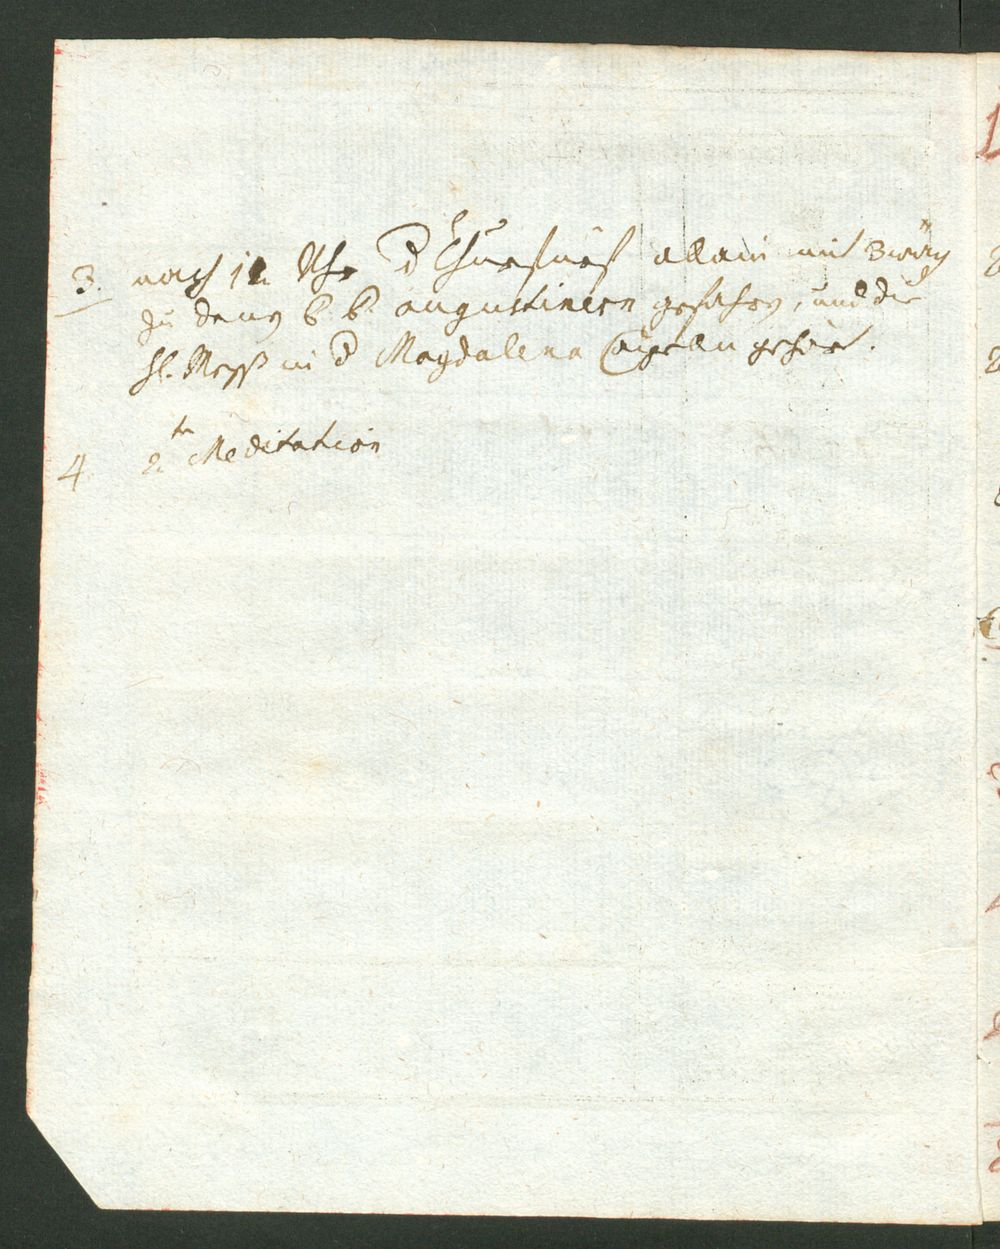 3. nach 12 Uhr d Churfürst allein mit 3 wäg
zu denen P P. augustinern gefahren, und die
hl. Mess in d Magdalena Capellen gehört.
4. 2te Meditation